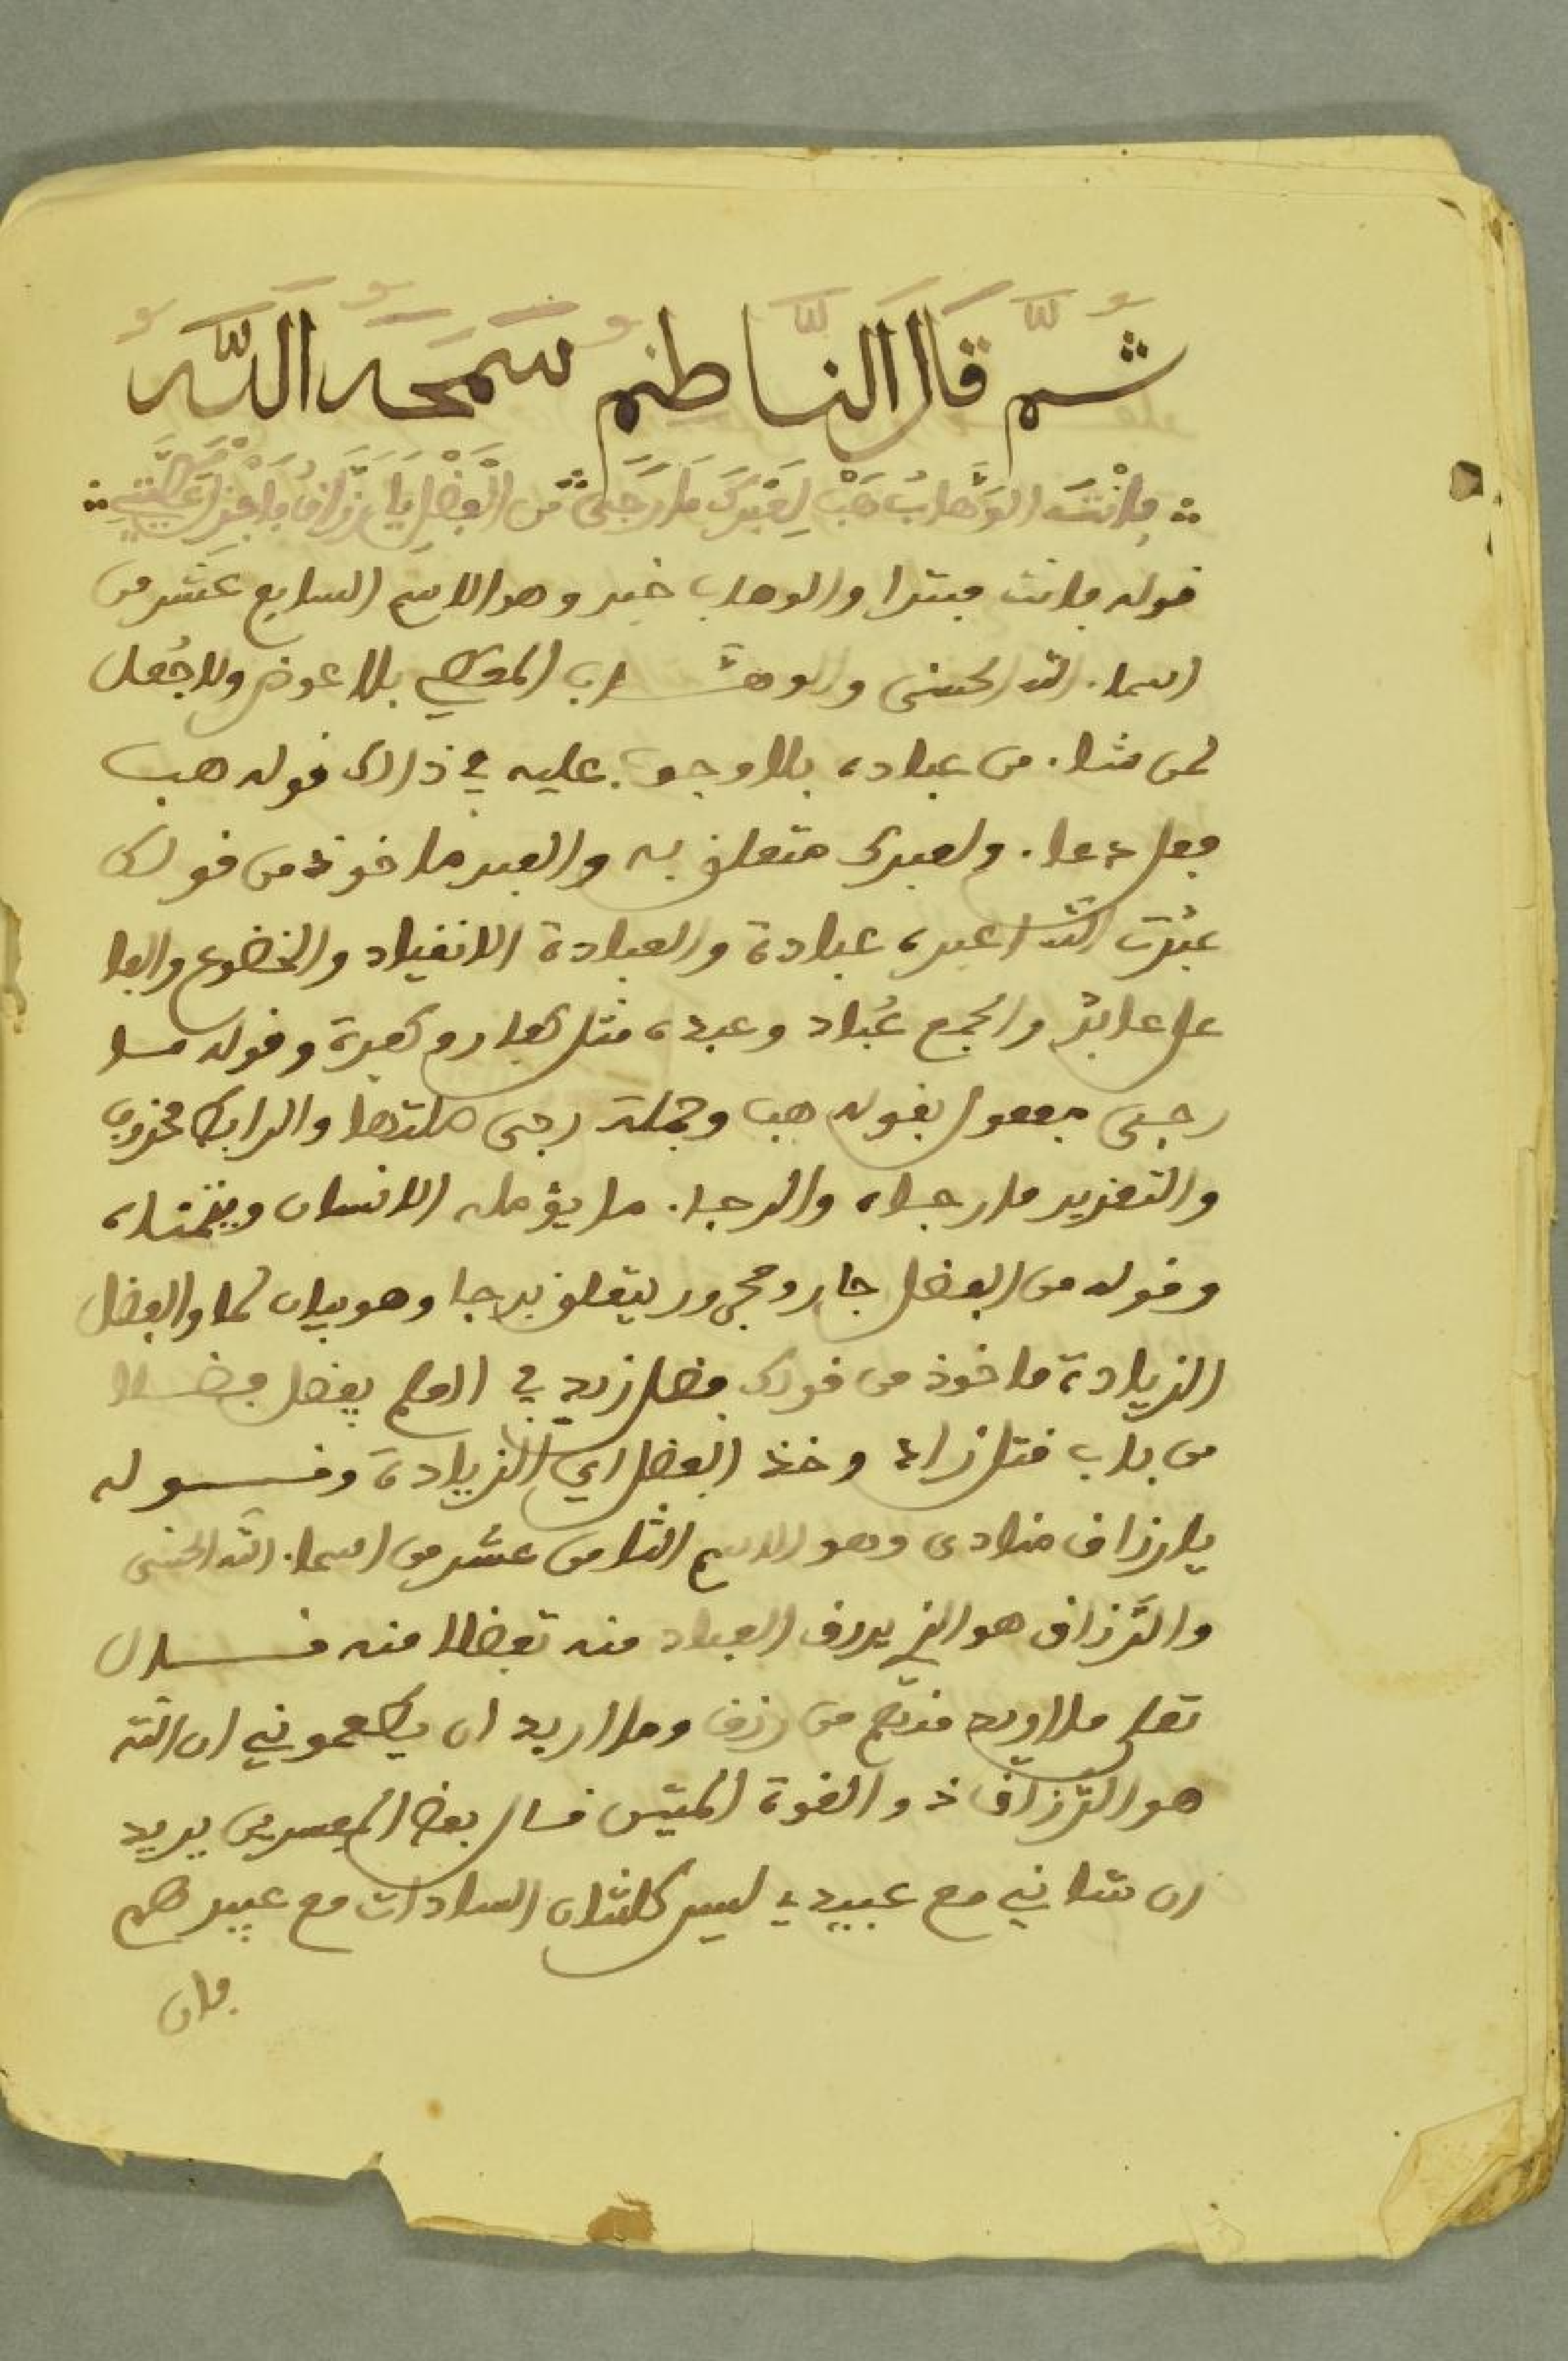 ثُمَّ قَالَ النَّاظِمُ سَمَحَهُ اللَّهُ
فَأَنْتَ الوَهَّابُ هَبْ لِعَبْدِكَ مَا رَجَى مِنَ الْفَضْلِ يَا رَزَّاقُ
قوله فانت مبتدا والوهاب خبر وهو الاسم السابع عشر من
اسماء الله الحسنى والوهاب المعطي بلا عوض ولا جُعل
لمن شاء من عباده بلا وجوب عليه في ذالك قوله هب
فعل دعاء ولعبدك متعلق به والعبد ماخوذ من قولك
عبدت الله اعبده عبادة والعبادة الانقياد والخضوع والفا
عل عابد والجمع عُبّاد وعبدة مثل كفار وكفرة وقوله ما
رجى مفعول بقوله هب وجملة رجى صلتها والرابط محذوف
والتقدير ما رجاه والرجاء ما يؤمله الانسان ويتمناه
وقوله من الفضل جار ومجرور يتعلق برجا وهو بيان لما والفضل
الزيادة ماخوذ من قولك فضل زيد في يفضل فضلا
من باب قتل زاد وخذ الفضل اي الزيادة وقوله
يا رزاق منادى وهو الاسم الثامن عشر من اسماء الله الحسنى
والرَّزاق هو الذي يرزق العباد منه تفضلا منه قال
تعلى ما اريد منهم من رزق وما اريد ان يطعموني ان الله
هو الرَّزاق ذو القوة المتين قال بعض المفسرين يريد
ان شاني مع عبيدي ليس كشان السادات مع عبيدهم
فان